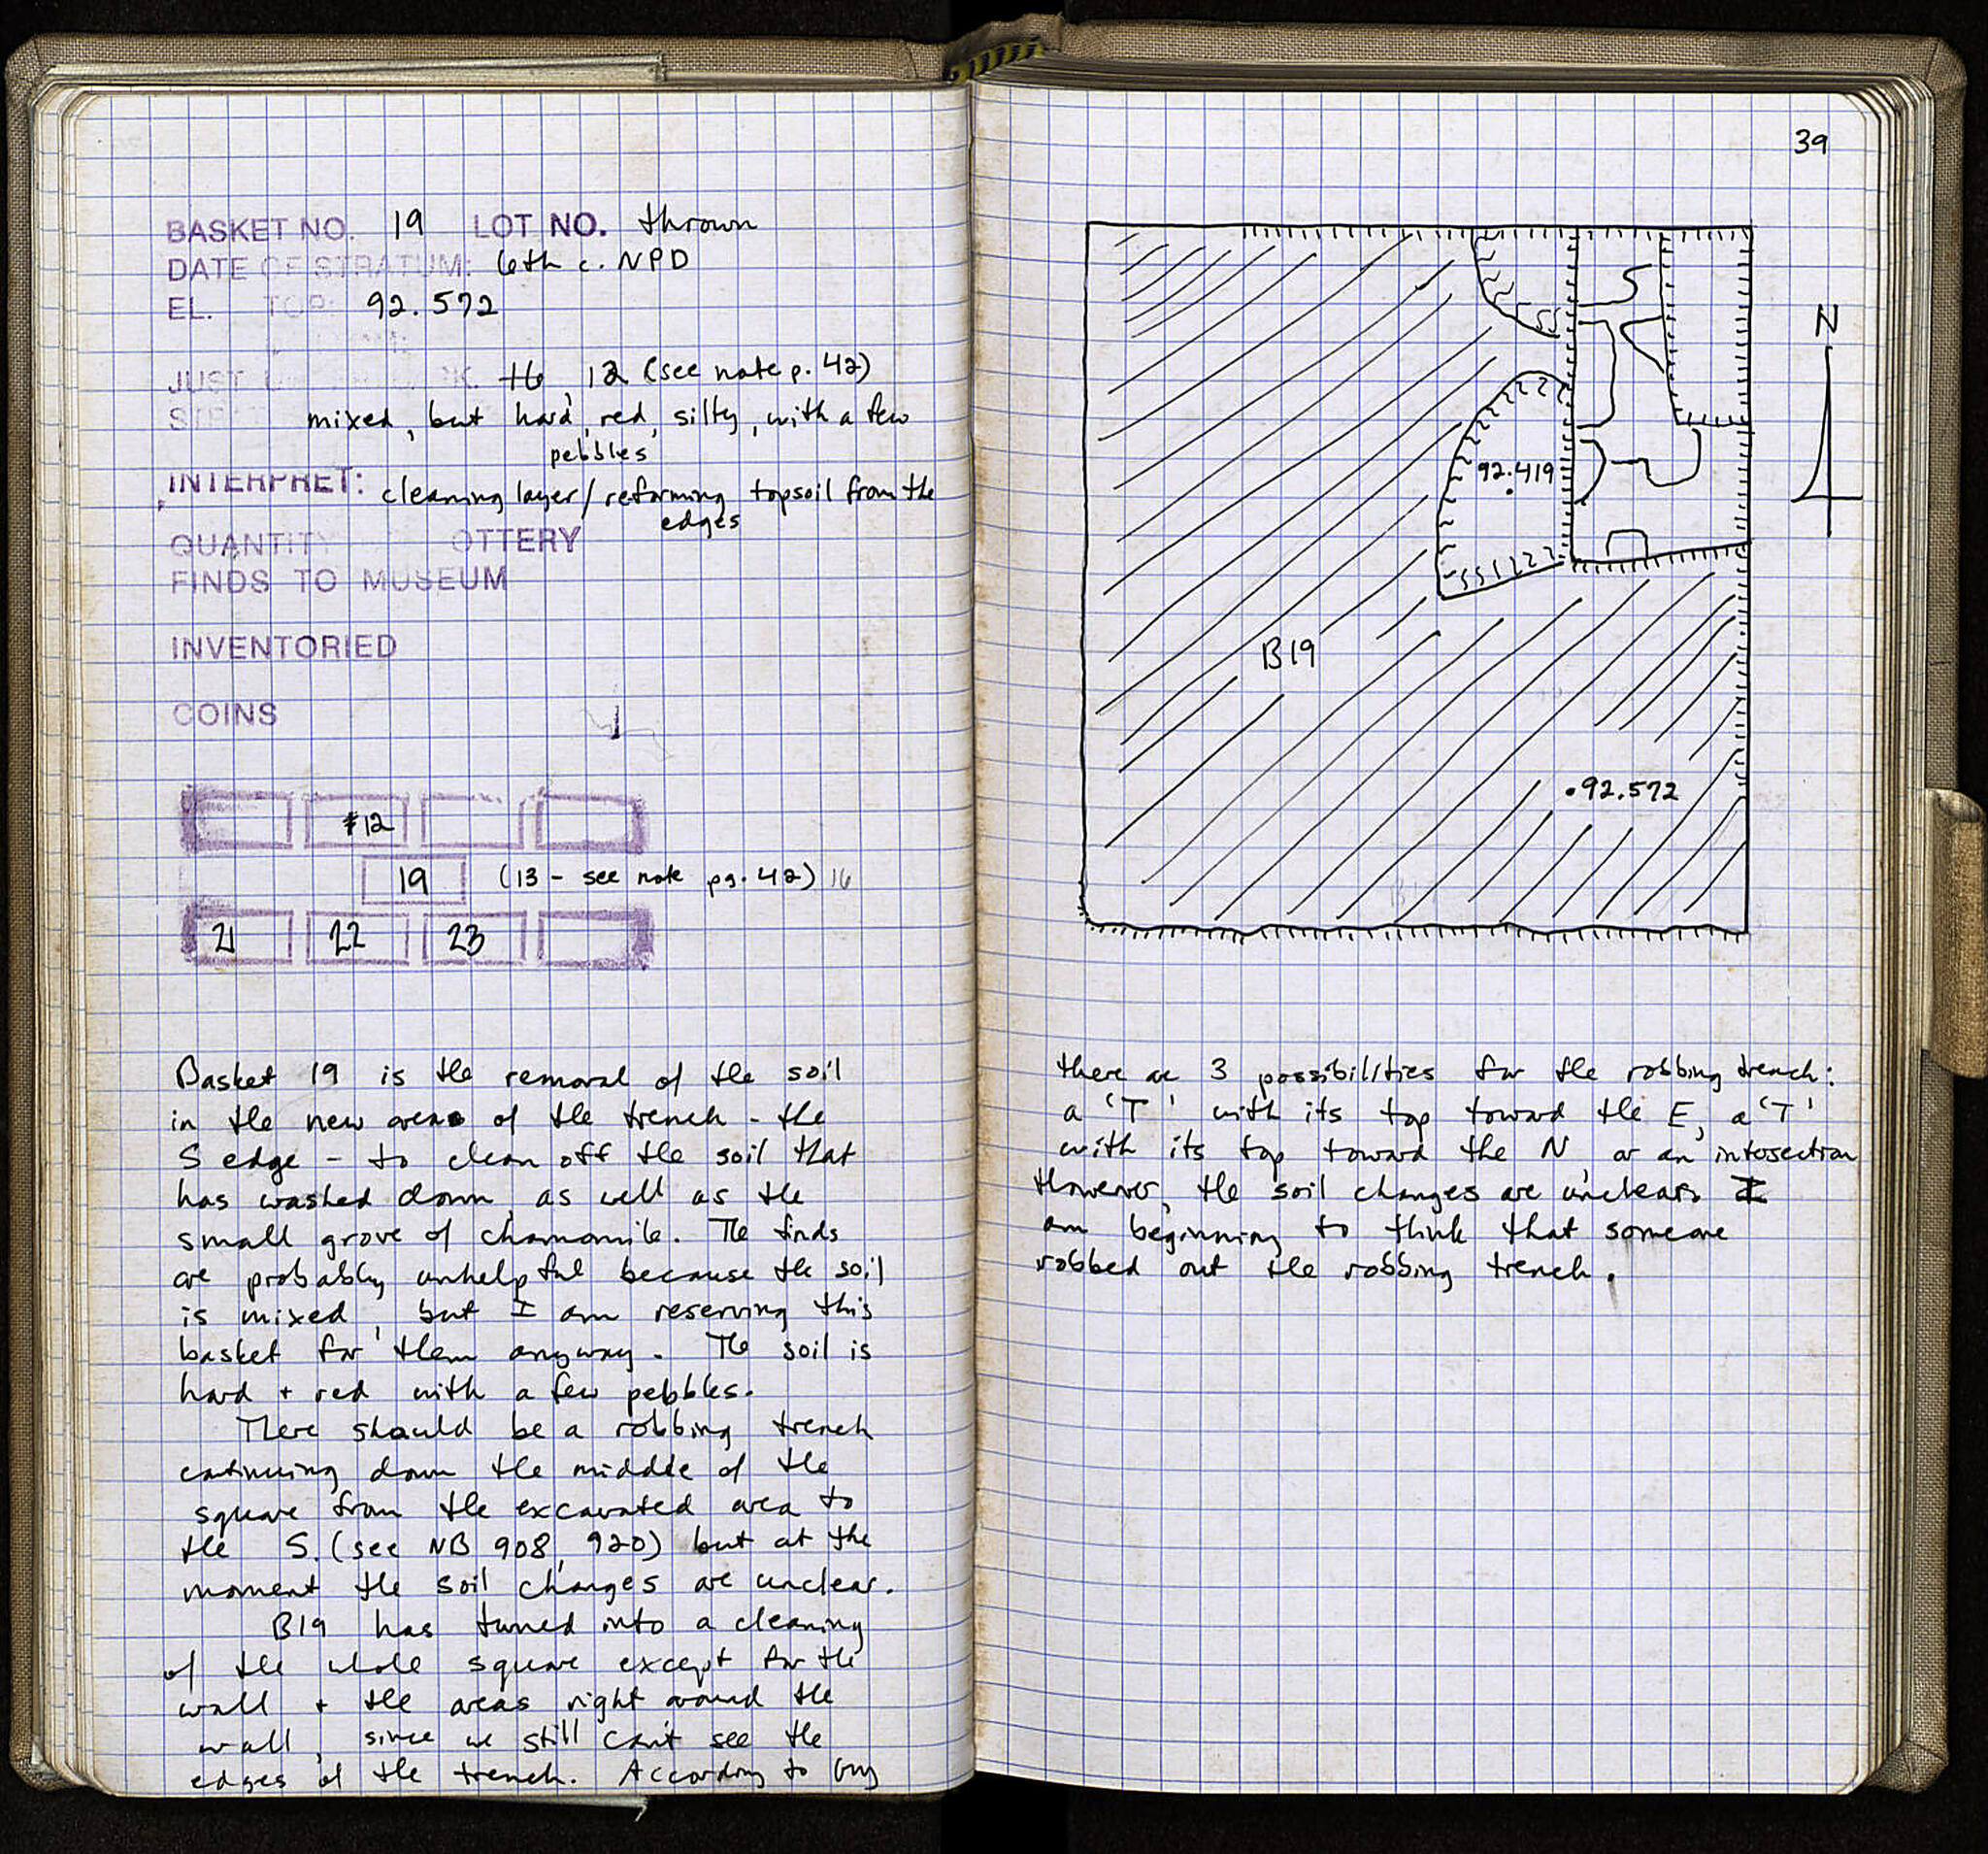 BASKET NO. 19 LOT NO. thrown
DATE OF STRATUM: 6th c. NPD
EL. TOP: 92.572
JUST 16, 12 (see note p. 42)
mixed, but hard, red, silty, with a few
pebbles
INTERPRET: cleaning layer/reforming topsoil from the
edges
QUANTITY OTTERY
FINDS TO MUSEUM
INVENTORIED
COINS
12
19 (13 - see note pg. 42) 16
21 22 23
Basket 19 is the removal of the soil
in the new area of the trench - the
S edge - to clean off the soil that
has washed down, as well as the
small grove of chamomile. The finds
are probably unhelpful because the soil
is mixed, but I am reserving this
basket for them anyway. The soil is
hard + red with a few pebbles.
There should be a robbing trench
continuing down the middle of the
square from the excavated area to
the S. (see NB 908, 920) but at the
moment the soil changes are unclear.
B19 has turned into a cleaning
of the whole square except for the
wall + the areas right around the
wall, since we still can't see the
edges of the trench. According to Guy
39
N
92.419
B19
.92.572
there are 3 possibilities for the robbing trench:
a 'T' with its top toward the E, a 'T'
with its top toward the N, or an intersection
However, the soil changes are unclear. I
am beginning to think that someone
robbed out the robbing trench.